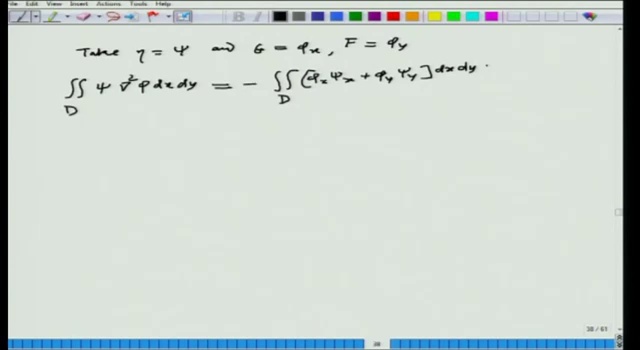 File Edit View Insert Actions Tools Help
Take η = ψ and G = φ_x, F = φ_y
∬_D ψ ∇²φ dx dy = - ∬_D [φ_x ψ_x + φ_y ψ_y] dx dy.
38 / 61
38